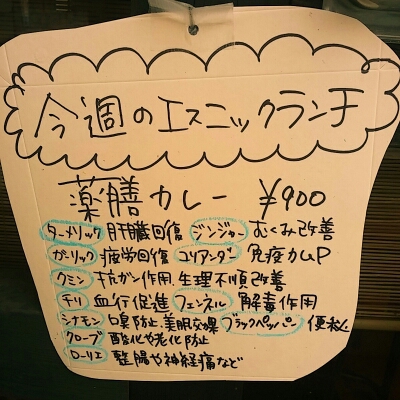 今週のエスニックランチ
薬膳カレー ¥900
ターメリック 肝臓回復 ジンジャー むくみ改善
ガーリック 疲労回復 コリアンダー 免疫力UP
クミン 抗ガン作用、生理不順改善
チリ 血行促進 フェンネル 解毒作用
シナモン 口臭防止、美肌効果 ブラックペッパー 便秘
クローブ 酸化や老化防止
ローリエ 整腸や神経痛など